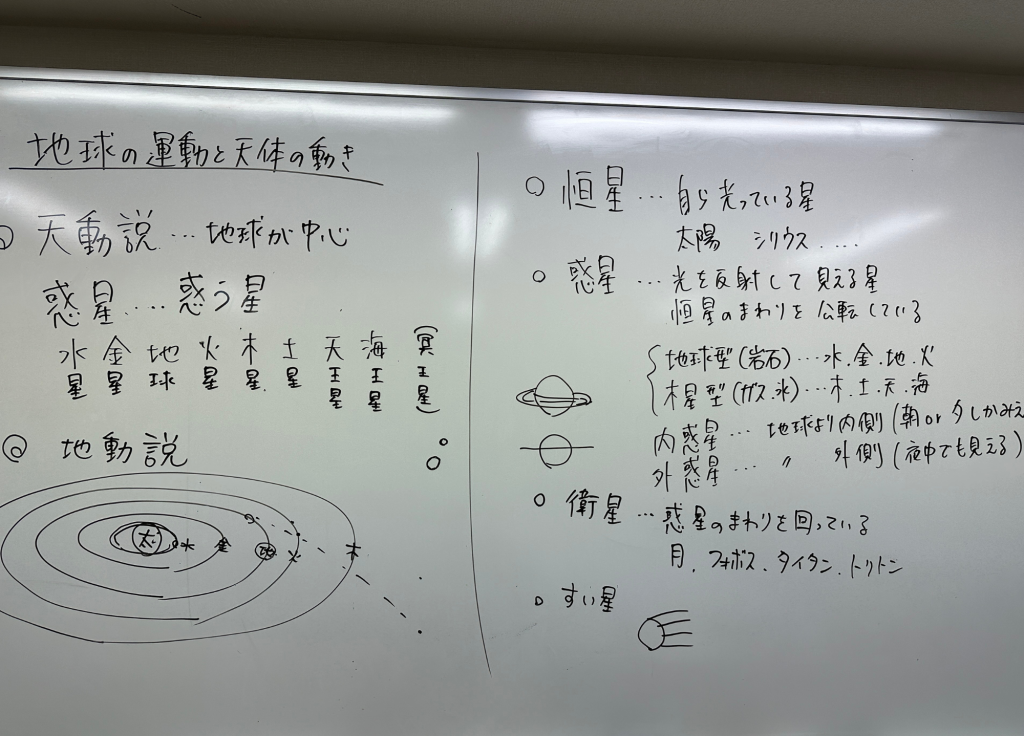 地球の運動と天体の動き
天動説…地球が中心
惑星…惑う星
水星 金星 地球 火星 木星 土星 天王星 海王星 (冥王星)
地動説
太 水 金 地 火 木
恒星…自ら光っている星
太陽 シリウス....
惑星…光を反射して見える星
恒星のまわりを公転している
地球型(岩石)…水.金.地.火
木星型(ガス.氷)…木.土.天.海
内惑星…地球より内側(朝or夕しかみえ
外惑星…〃 外側(夜中でも見える)
衛星…惑星のまわりを回っている
月.フォボス.タイタン.トリトン
すい星